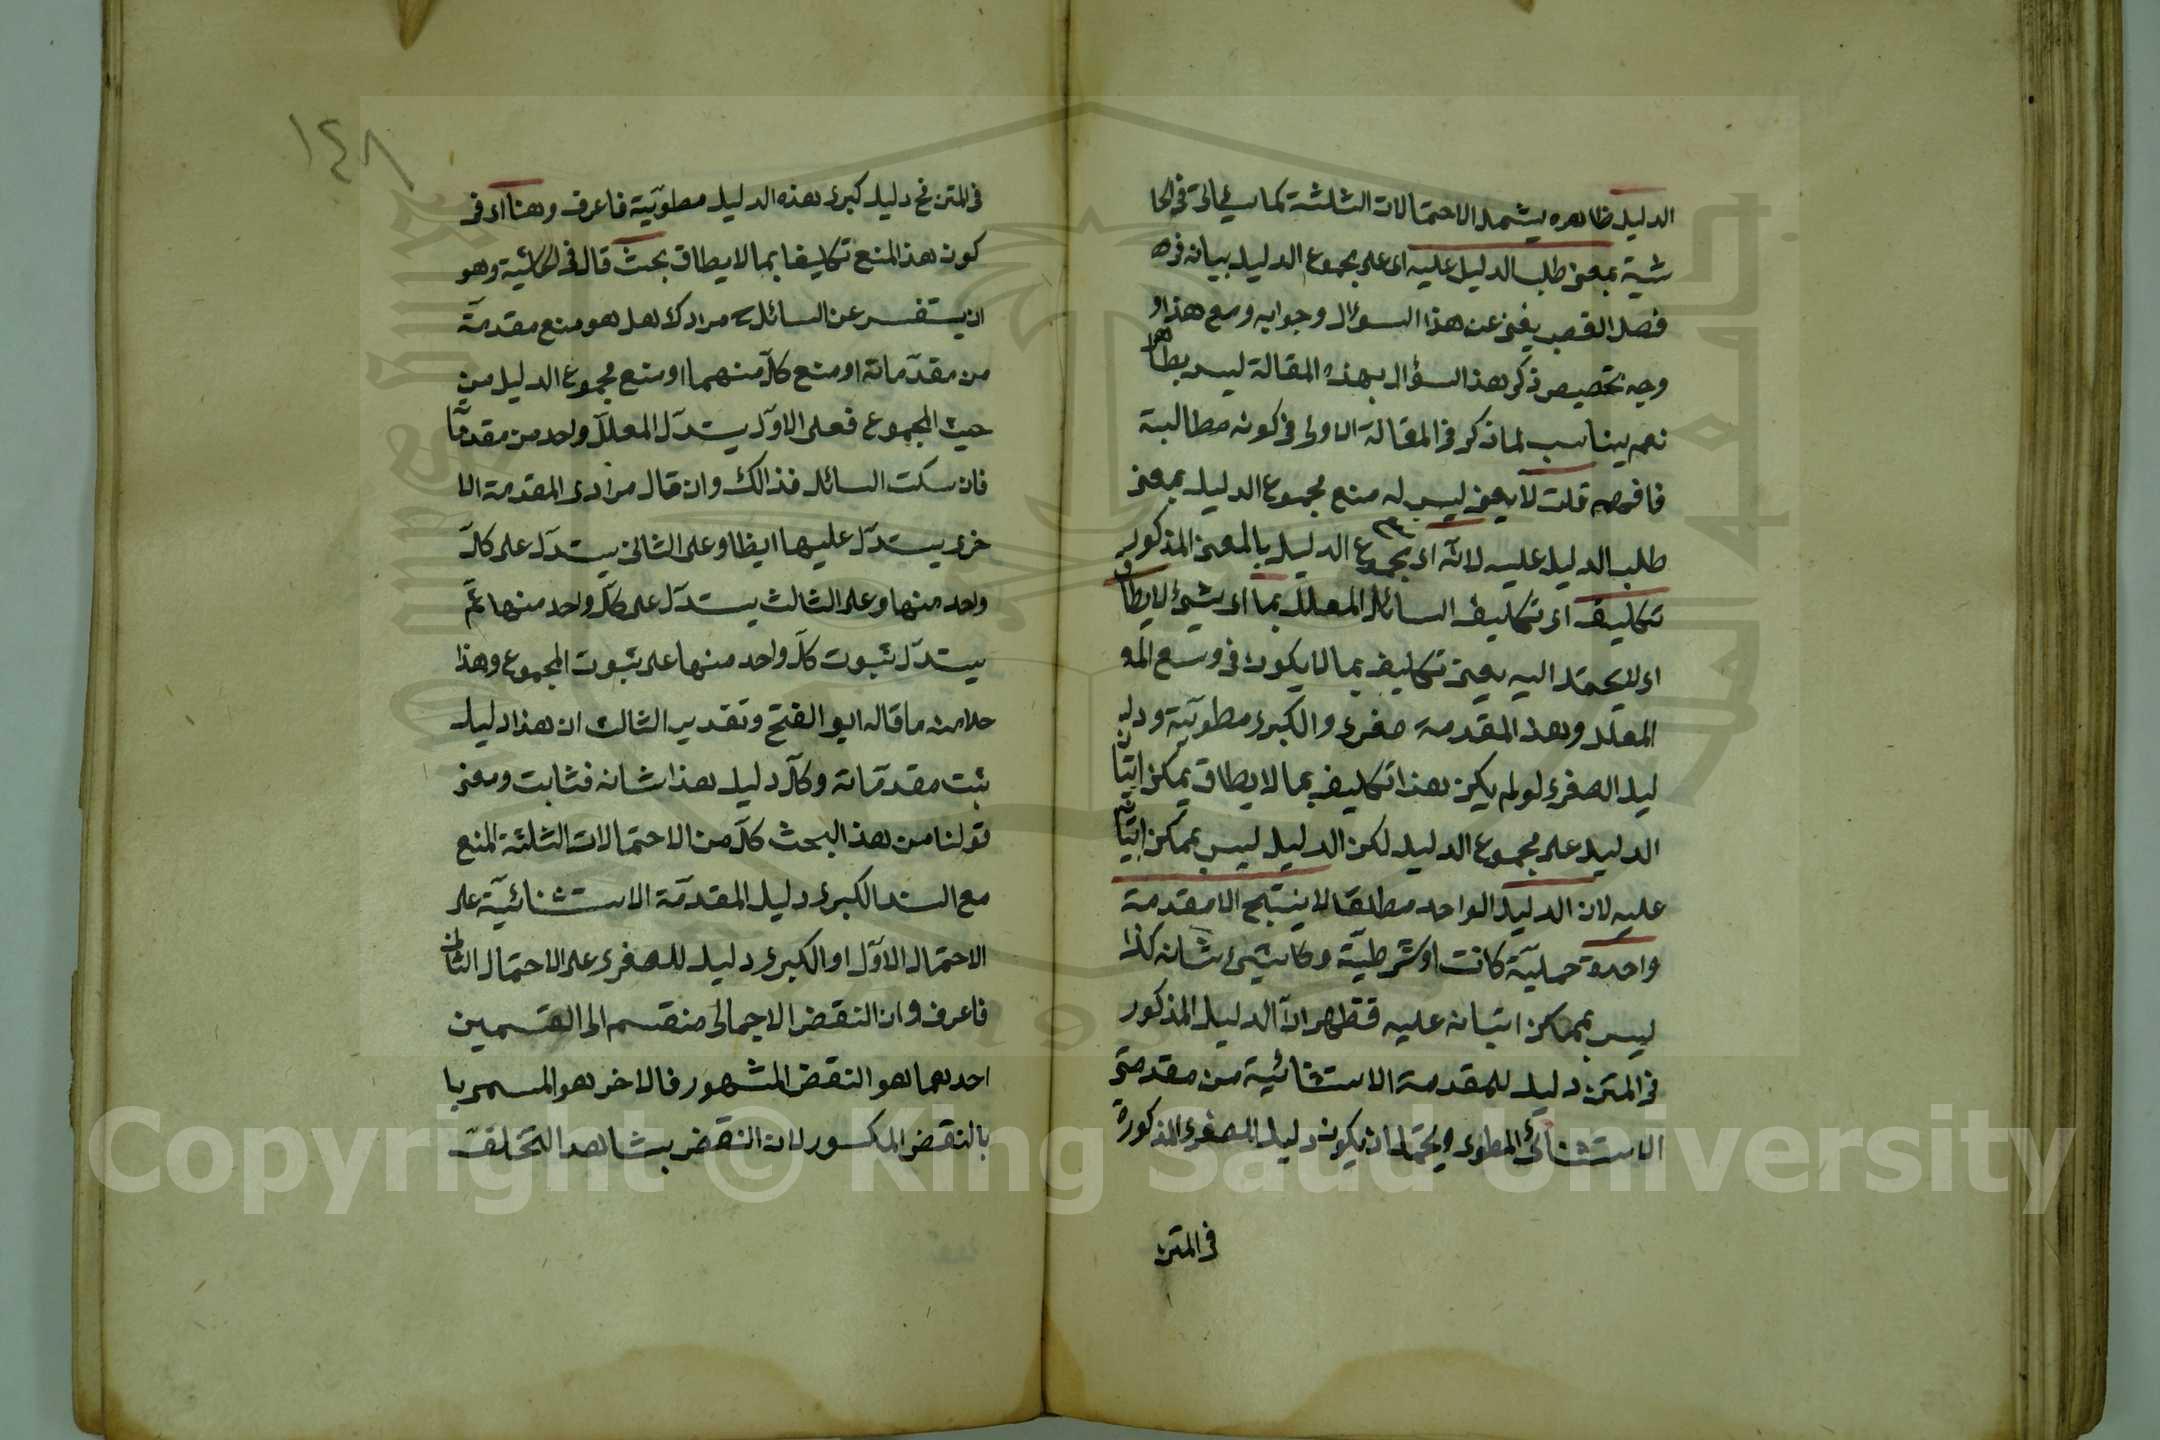 الدليل ظاهره يشمل الاحتمالات الثلثة كما سيجئ في الحا
شية بمعنى طلب الدليل عليه اى على مجموع الدليل بيانه في
فصل الغصب يغنى عن هذا السؤال وجوابه ومع هذا او
وجه تخصيص ذكر هذا السؤال بهذه المقالة ليس بظاهر
نعم يناسب لما ذكر في المقالة الاولى في كونه مطالبة
فافهم قلت لا يعنى ليس له منع مجموع الدليل بمعنى
طلب الدليل عليه لانّه اى مجموع الدليل بالمعنى المذكور
تكليف اى تكليف السائل المعلل بما اى شيئ لا يطاق
اى لا يحتمل اليه يعنى تكليف بما لا يكون في وسع المو
المعلل وهذ المقدمة صغرى والكبرى مطويّة ودلـ
ليل الصغرى لو لم يكن هذا تكليف بما لا يطاق يمكن اتيان
الدليل على مجموع الدليل لكن الدليل ليس بممكن اتيانه
عليه لان الدليل الواحد مطلقا لا ينتج الا مقدمة
واحدة حملية كانت او شرطيّة وكل شيئ شانه كذا
ليس بممكن اتيانه عليه فظهر انّ الدليل المذكور
في المتن دليل للمقدمة الاستثنائية من مقدمتى
الاستثنائى المطوى ويحتمل ان يكون دليل الصغرى المذكورة
في المتن
١٤٨
في المتن فح دليل كبرى هذه الدليل مطويّة فاعرف وهنا اى في
كون هذ المنع تكليفا بما لا يطاق بحث قال في الحاشية وهو
ان يستفسر عن السائل مرادك هل هو منع مقدمة
من مقدّماته او منع كلّ منهما او منع مجموع الدليل من
حيث المجموع فعلى الاوّل يستدلّ المعلل واحد من مقدماته
فان سكت السائل فذالك وان قال مرادى المقدمة الا
خرى يستدلّ عليها ايضا وعلى الثانى يستدلّ على كلّ
واحد منها وعلى الثالث يستدلّ على كلّ واحد منها ثمّ
يستدلّ ثبوت كلّ واحد منها على ثبوت المجموع وهذا
خلاصة ما قاله ابو الفتح وتقدير الثالث ان هذا دليل
ثبت مقدّماته وكلّ دليل هذا شانه فثابت ومعنى
قولنا من هذ البحث كلّ من الاحتمالات الثلثة المنع
مع السند الكبرى دليل المقدمّة الاستثنائيّة على
الاحتمال الاوّل او الكبرى دليل للصغرى على الاحتمال الثانى
فاعرف وان النقض الاجمالى منقسم الى القسمين
احدهما هو النقض المشهور فالاخر هو المسمى با
بالنقض المكسور لان النقض بشاهد التخلف
Copyright © King Saud University